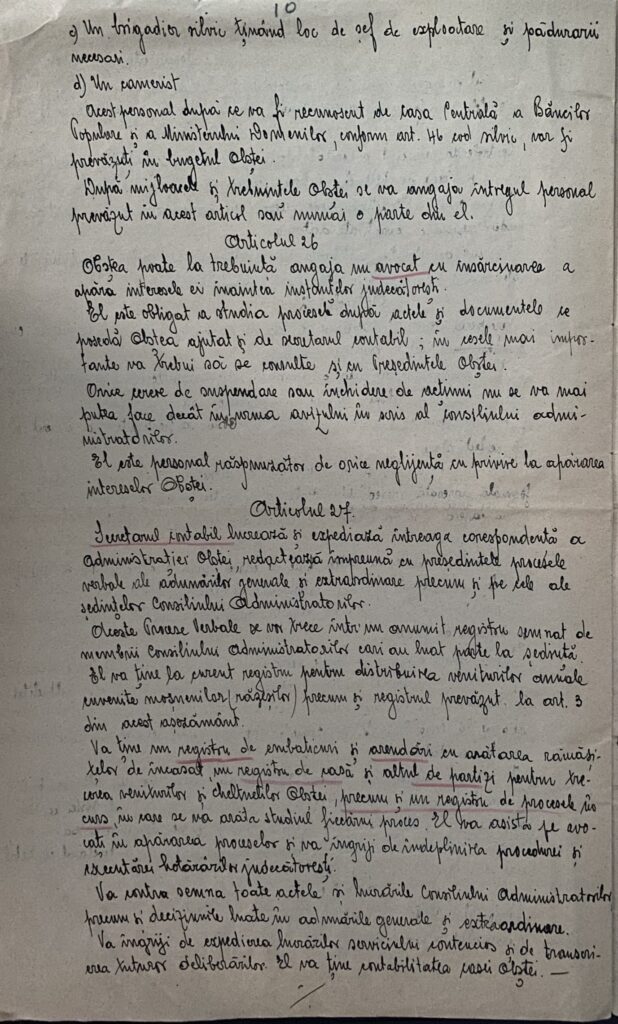 10
c) Un brigadier silvic ținând loc de șef de exploatare și pădurarii
necesari.
d) Un camerist
Acest personal după ce va fi recunoscut de Casa Centrală a Băncilor
Populare și a Ministerului Domenilor, conform art. 46 cod silvic, vor fi
prevăzuți în bugetul Obștei.
După mijloacele și trebuințele Obștei se va angaja întregul personal
prevăzut în acest articol sau numai o parte din el.
Articolul 26
Obstea poate la trebuință angaja un avocat cu însărcinarea a
apăra interesele ei înaintea instanțelor judecătorești.
El este obligat a studia procesele după actele și documentele ce
posedă Obstea ajutat și de secretarul contabil; în cele mai impor-
tante va trebui să se consulte și cu Președintele Obștei.
Orice cerere de suspendare sau închidere de acțiuni nu se va mai
putea face decât în urma avizului în scris al consiliului admi-
nistratorilor.
El este personal răspunzător de orice neglijență cu privire la apărarea
intereselor Obștei.
Articolul 27.
Secretarul contabil lucrează și expediază întreaga corespondență a
Administrației Obștei, redactează împreună cu președintele procesele
verbale ale adunărilor generale și extraordinare precum și pe cele ale
ședințelor Consiliului Administratorilor.
Aceste Procese Verbale se vor trece într'un anumit registru semnat de
membrii Consiliului Administratorilor cari au luat parte la ședință.
El va ține la curent registru pentru distribuirea veniturilor anuale
cuvenite moșnenilor (răzeșilor) precum și registrul prevăzut la art. 3
din acest așezământ.
Va ține un registru de embaticuri și arendări cu arătarea rămăși-
țelor de încasat, un registru de casă și altul de partizi pentru tre-
cerea veniturilor și cheltuelilor Obștei, precum și un registru de procesele în
curs, în care se va arăta studiul fiecărui proces. El va asista pe avo-
cați în apărarea proceselor și va îngriji de îndeplinirea procedurei și
executărei hotărârilor judecătorești.
Va contra semna toate actele și lucrările Consiliului Administratorilor
precum și deciziunile luate în adunările generale și extraordinare.
Va îngriji de expedierea lucrărilor serviciului contencios și de transcri-
erea tuturor deliberărilor. El va ține contabilitatea casei Obștei. —